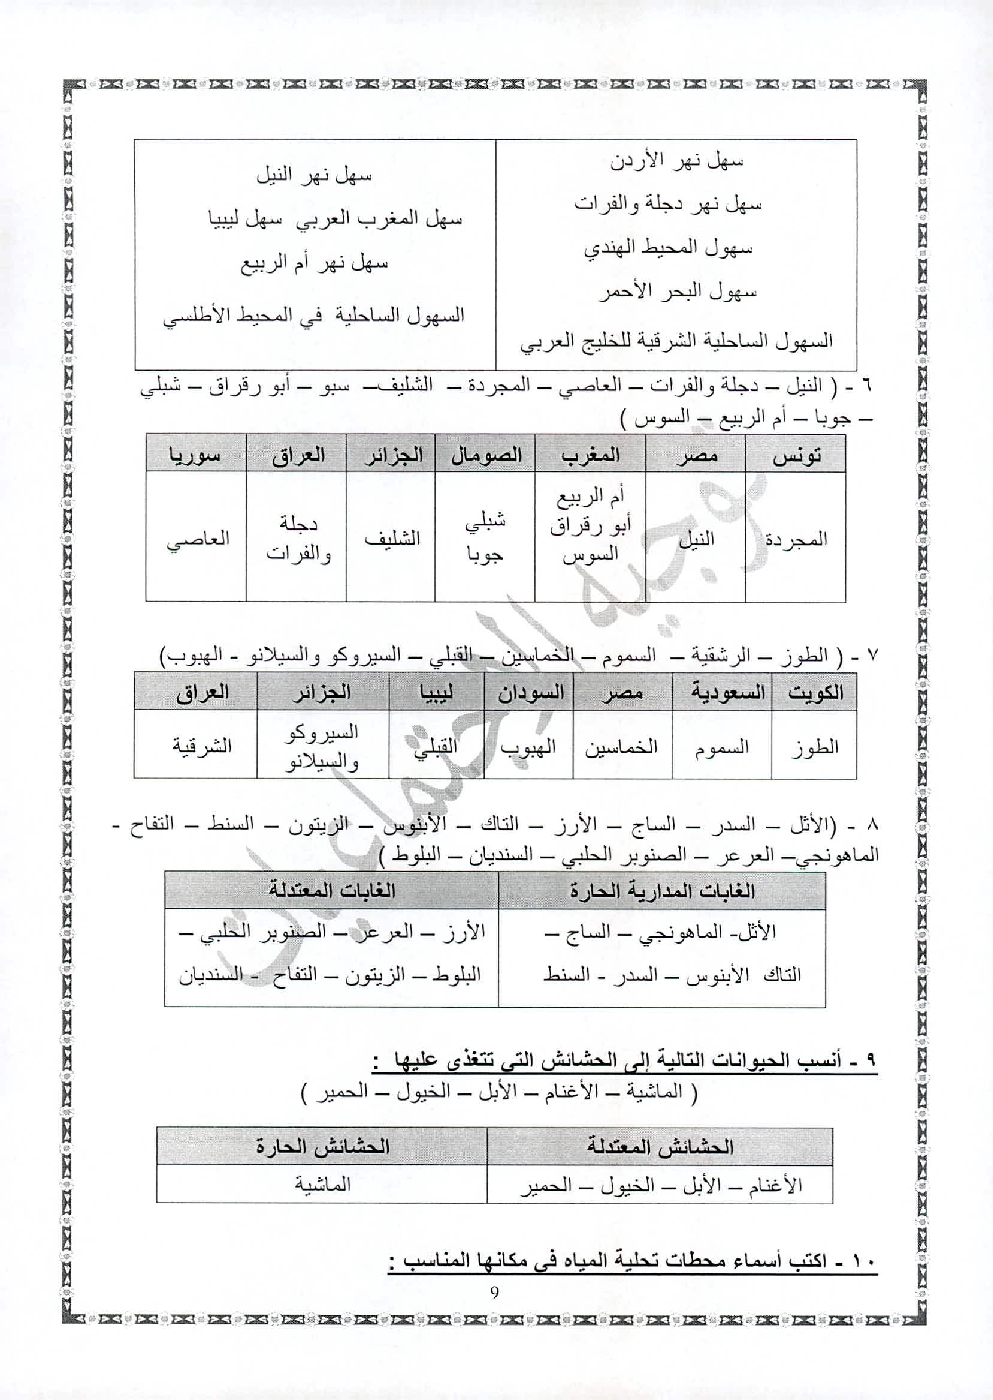 سهل نهر الأردن
سهل نهر دجلة والفرات
سهول المحيط الهندي
سهول البحر الأحمر
السهول الساحلية الشرقية للخليج العربي
سهل نهر النيل
سهل المغرب العربي سهل ليبيا
سهل نهر أم الربيع
السهول الساحلية في المحيط الأطلسي
٦ - ( النيل – دجلة والفرات – العاصي – المجردة – الشليف– سبو – أبو رقراق – شبلي
– جوبا – أم الربيع – السوس )
تونس مصر المغرب الصومال الجزائر العراق سوريا
المجردة النيل أم الربيع أبو رقراق السوس شبلي جوبا الشليف دجلة والفرات العاصي
٧ - ( الطوز – الرشقية – السموم – الخماسين – القبلي – السيروكو والسيلانو - الهبوب)
الكويت السعودية مصر السودان ليبيا الجزائر العراق
الطوز السموم الخماسين الهبوب القبلي السيروكو والسيلانو الشرقية
٨ - (الأثل – السدر – الساج – الأرز – التاك – الأبنوس – الزيتون – السنط – التفاح -
الماهونجي– العرعر – الصنوبر الحلبي – السنديان – البلوط )
الغابات المدارية الحارة الغابات المعتدلة
الأثل- الماهونجي – الساج –
التاك الأبنوس – السدر - السنط
الأرز – العرعر – الصنوبر الحلبي –
البلوط – الزيتون – التفاح - السنديان
٩ - أنسب الحيوانات التالية إلى الحشائش التي تتغذى عليها :
( الماشية – الأغنام – الأبل – الخيول – الحمير )
الحشائش المعتدلة الحشائش الحارة
الأغنام – الأبل – الخيول – الحمير الماشية
١٠ - اكتب أسماء محطات تحلية المياه في مكانها المناسب :
9
توجيه الاجتماعيات